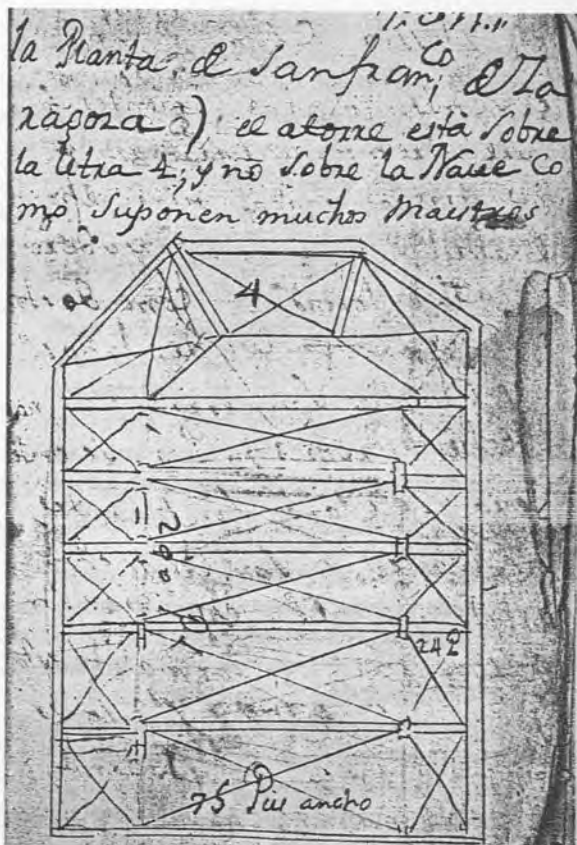 la Planta, de Sanfran,co de Za
ragoza) el atorre está sobre
la letra 4; y nō sobre la Naue Co
mō suponen muchos Maestros
4
242
75 Pies ancho